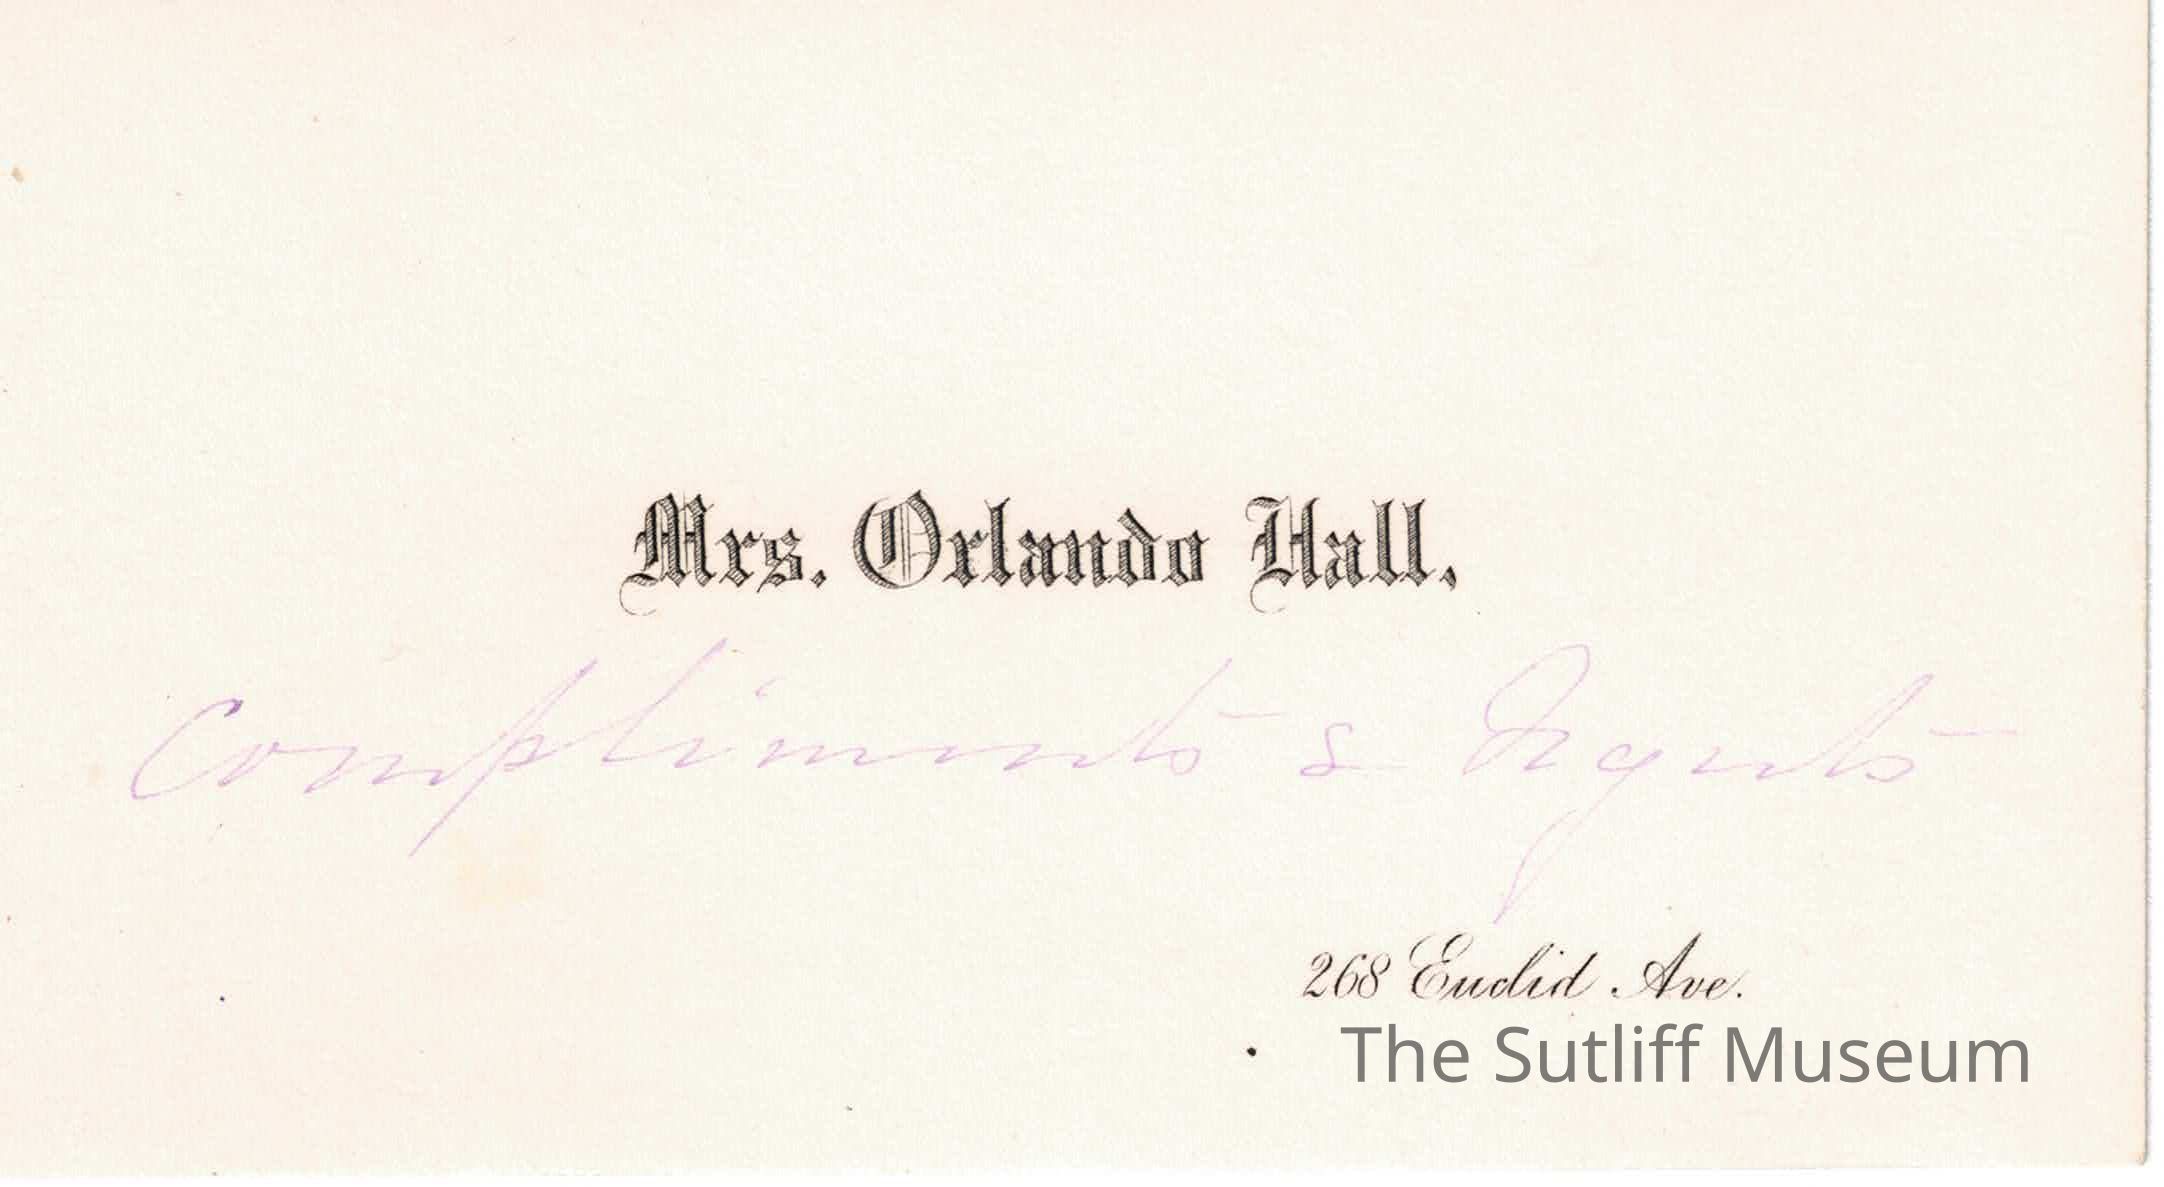 Mrs. Orlando Hall.
Compliments & Regrets
268 Euclid Ave.
The Sutliff Museum